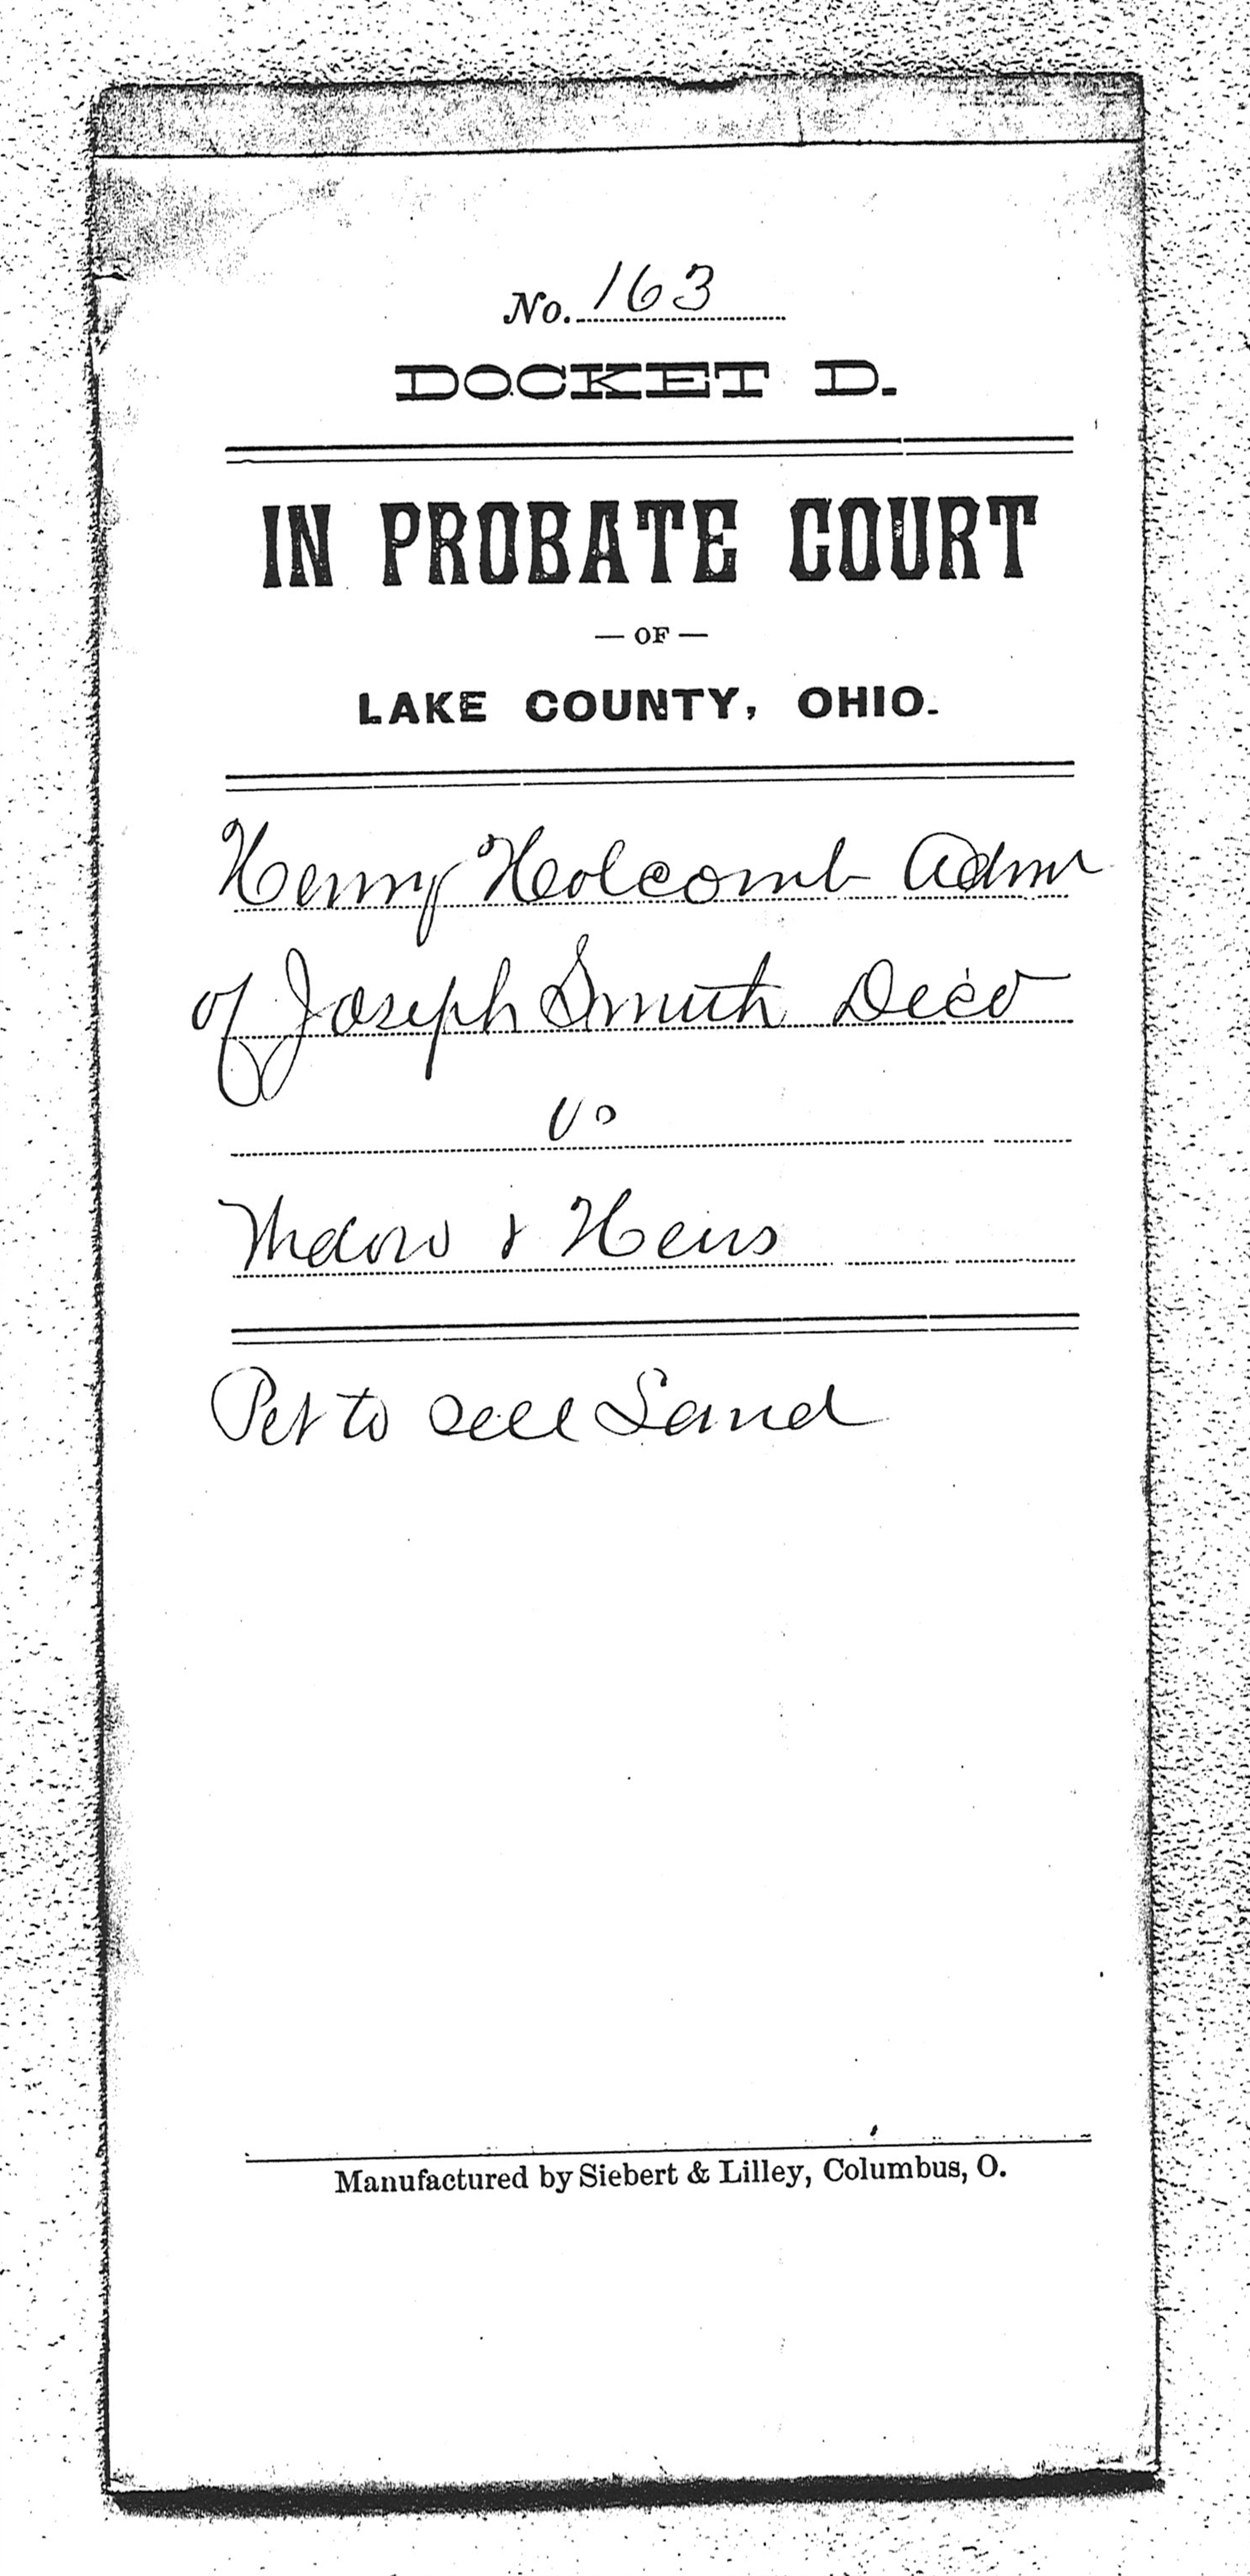 No. 163
DOCKET D.
IN PROBATE COURT
— OF —
LAKE COUNTY, OHIO.
Henry Holcomb Admr
of Joseph Smith Dec'd
vs
Widow & Heirs
Pet to sell Land
Manufactured by Siebert & Lilley, Columbus, O.